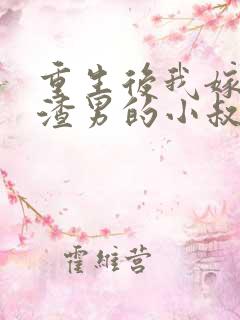 重生後我嫁
渣男的小叔
霍維营